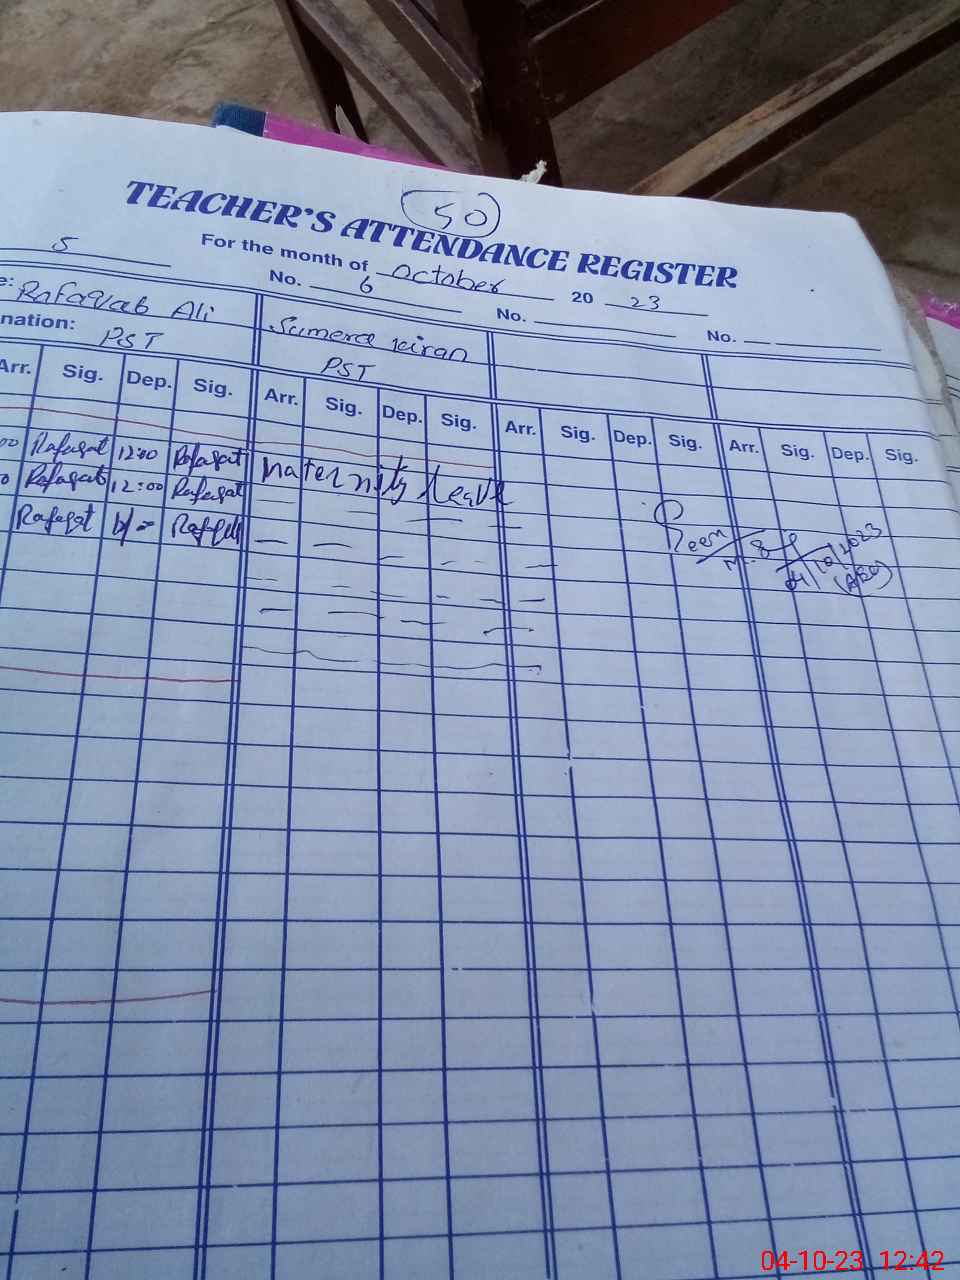 50
TEACHER'S ATTENDANCE REGISTER
For the month of October 20 23
5 No. 6 No. No.
e: Rafaqat Ali Sumera kiran
nation: PST PST
Arr. Sig. Dep. Sig. Arr. Sig. Dep. Sig. Arr. Sig. Dep. Sig. Arr. Sig. Dep. Sig.
00 Rafaqat 12:00 Rafaqat Maternity leave
0 Rafaqat 12:00 Rafaqat
Rafaqat Rafaqat
Seen
04/10/2023
04-10-23 12:42